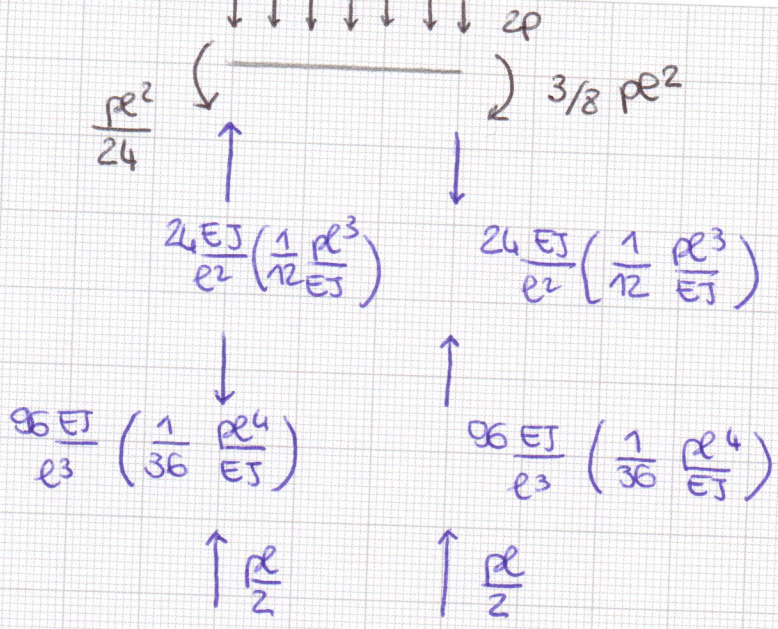 2p
pl²/24 3/8 pl²
24 EJ/l² (1/12 pl³/EJ) 24 EJ/l² (1/12 pl³/EJ)
96 EJ/l³ (1/36 pl⁴/EJ) 96 EJ/l³ (1/36 pl⁴/EJ)
pl/2 pl/2